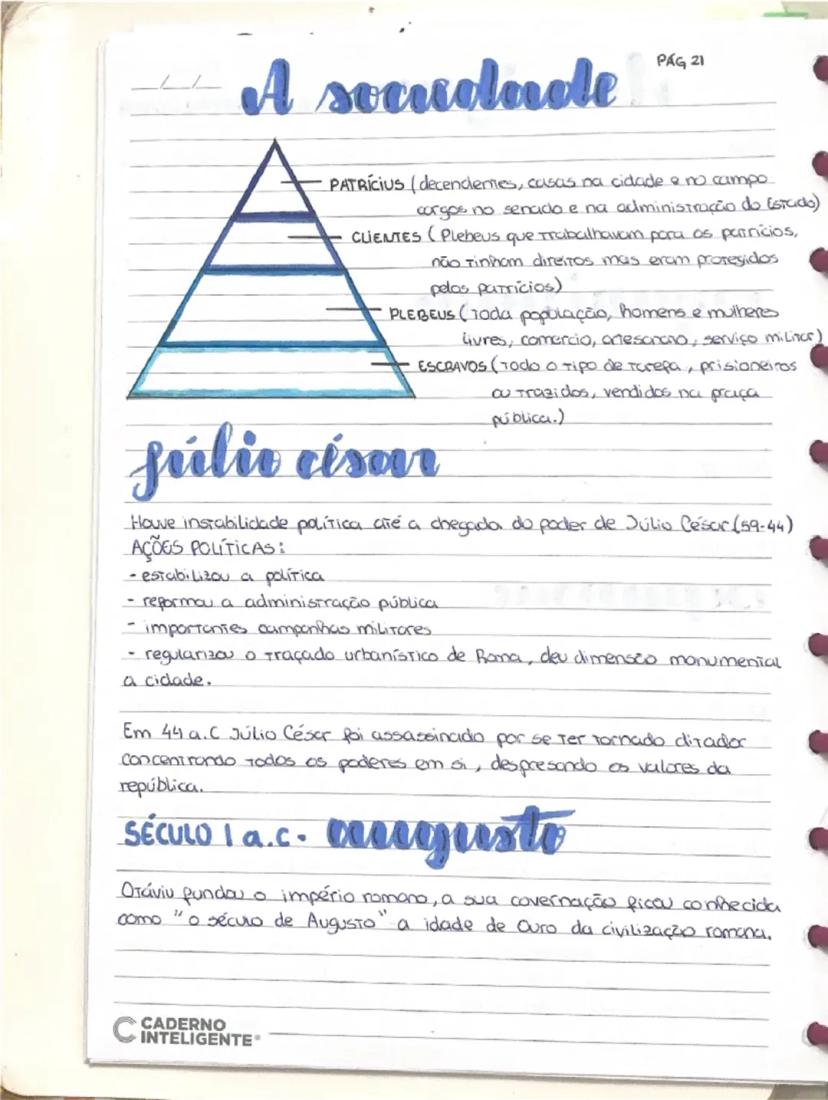 PÁG 21
A sociedade
PATRÍCIUS (decendentes, casas na cidade e no campo
cargos no senado e na administração do Estado)
CLIENTES (Plebeus que trabalhavam para os patrícios,
não tinham direitos mas eram protegidos
pelos patrícios)
PLEBEUS (toda população, homens e mulheres
livres, comercio, artesanano, serviço militar)
ESCRAVOS (todo o tipo de tarefa, prisioneiros
ou trazidos, vendidos na praça
pública.)
Júlio césar
Houve instabilidade política até a chegada do poder de Júlio César (59-44)
AÇÕES POLÍTICAS:
- estabilizou a política
- reformou a administração pública
- importantes campanhas militares
- regularizou o traçado urbanístico de Roma, deu dimensão monumental
a cidade.
Em 44 a.C Júlio César foi assassinado por se ter tornado ditador
concentrando todos os poderes em si, despresando os valores da
república.
SÉCULO I a.c. auugusto
Otáviu fundou o império romano, a sua covernação ficou conhecida
como "o século de Augusto" a idade de Ouro da civilização romana.
CADERNO
INTELIGENTE®